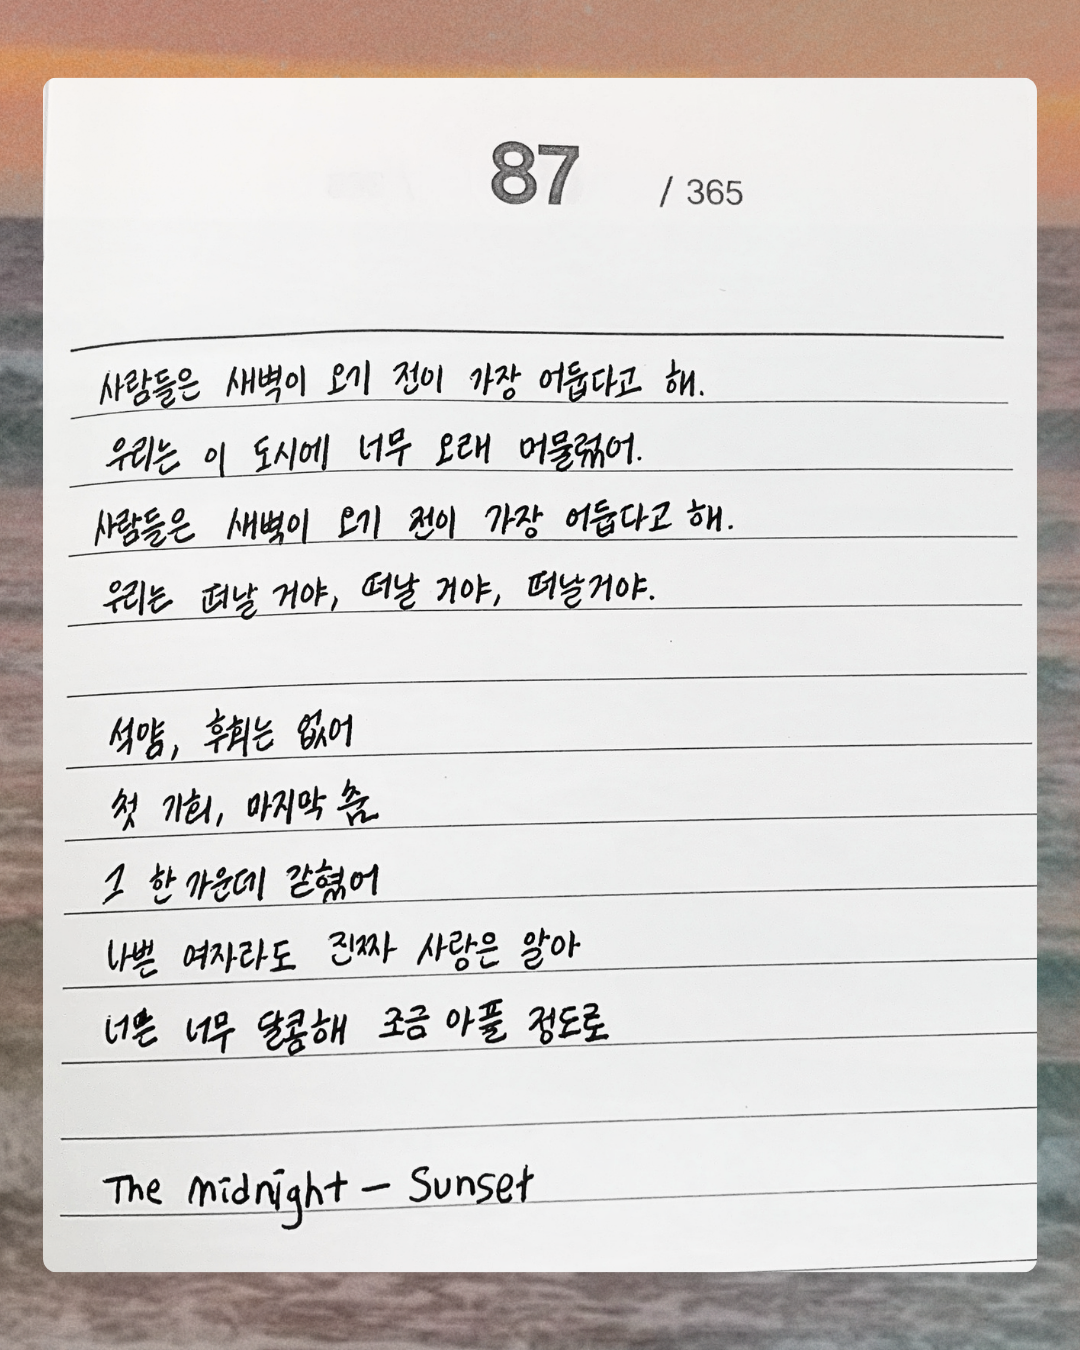 87 / 365
사람들은 새벽이 오기 전이 가장 어둡다고 해.
우리는 이 도시에 너무 오래 머물렀어.
사람들은 새벽이 오기 전이 가장 어둡다고 해.
우리는 떠날 거야, 떠날 거야, 떠날거야.
석양, 후회는 없어
첫 기회, 마지막 춤
그 한가운데 갇혔어
나쁜 여자라도 진짜 사랑은 알아
너는 너무 달콤해 조금 아플 정도로
The Midnight - Sunset